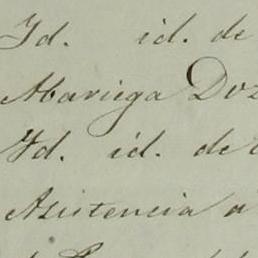 Id. id. de
Abariega Doz
Id. id. de
Asistencia a